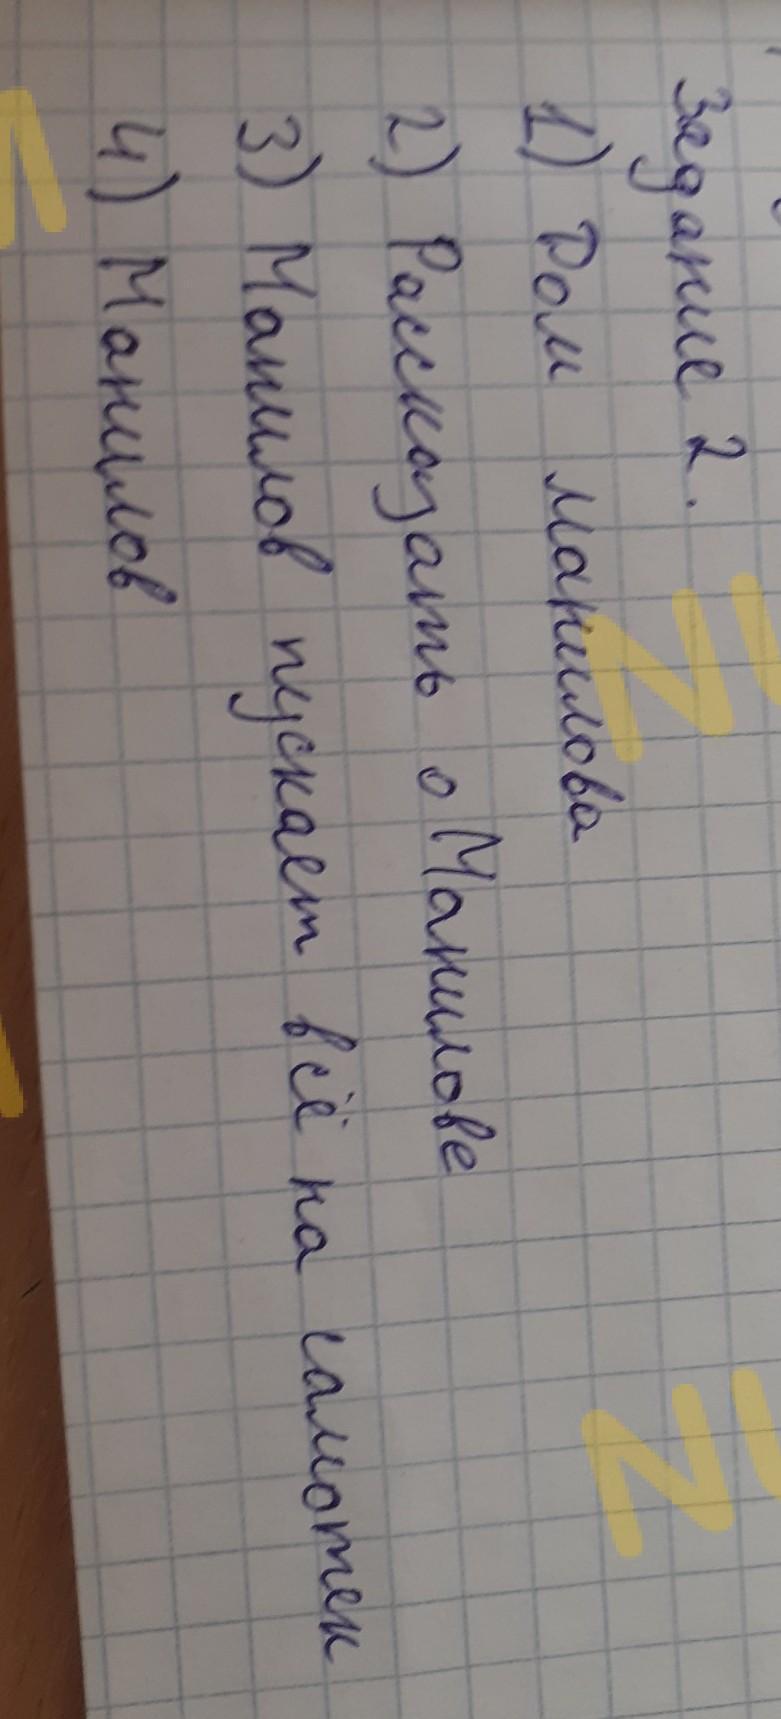 Задание 2.
1) Дом Манилова
2) Рассказать о Манилове
3) Манилов пускает всё на самотек
4) Манилов